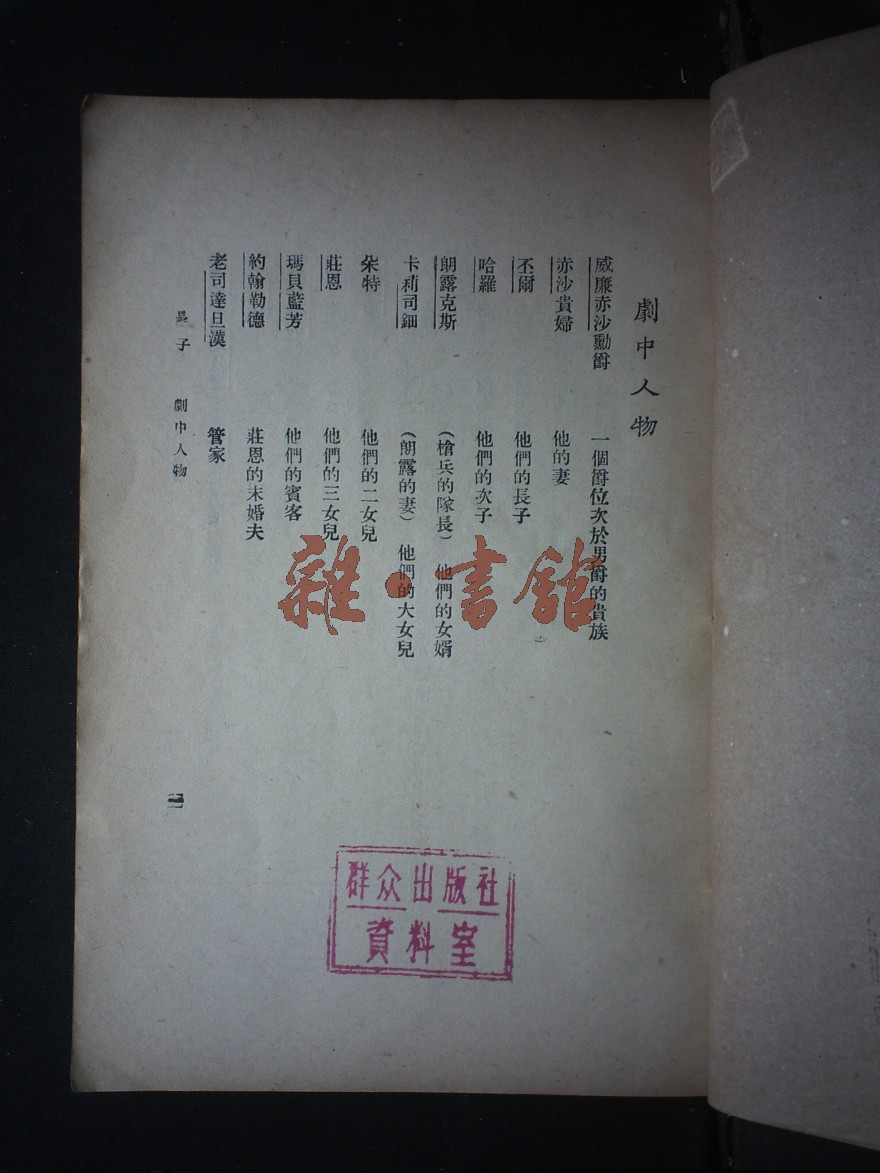 劇中人物
威廉赤沙勳爵 一個爵位次於男爵的貴族
赤沙貴婦 他的妻
丕爾 他們的長子
哈羅 他們的次子
朗露克斯 (槍兵的隊長) 他們的女婿
卡莉司鈿 (朗露的妻) 他們的大女兒
朵特 他們的二女兒
莊恩 他們的三女兒
瑪貝藍芳 他們的賓客
約翰勒德 莊恩的未婚夫
老司達旦漢 管家
長子 劇中人物
一
雜·書館
群众出版社
資料室